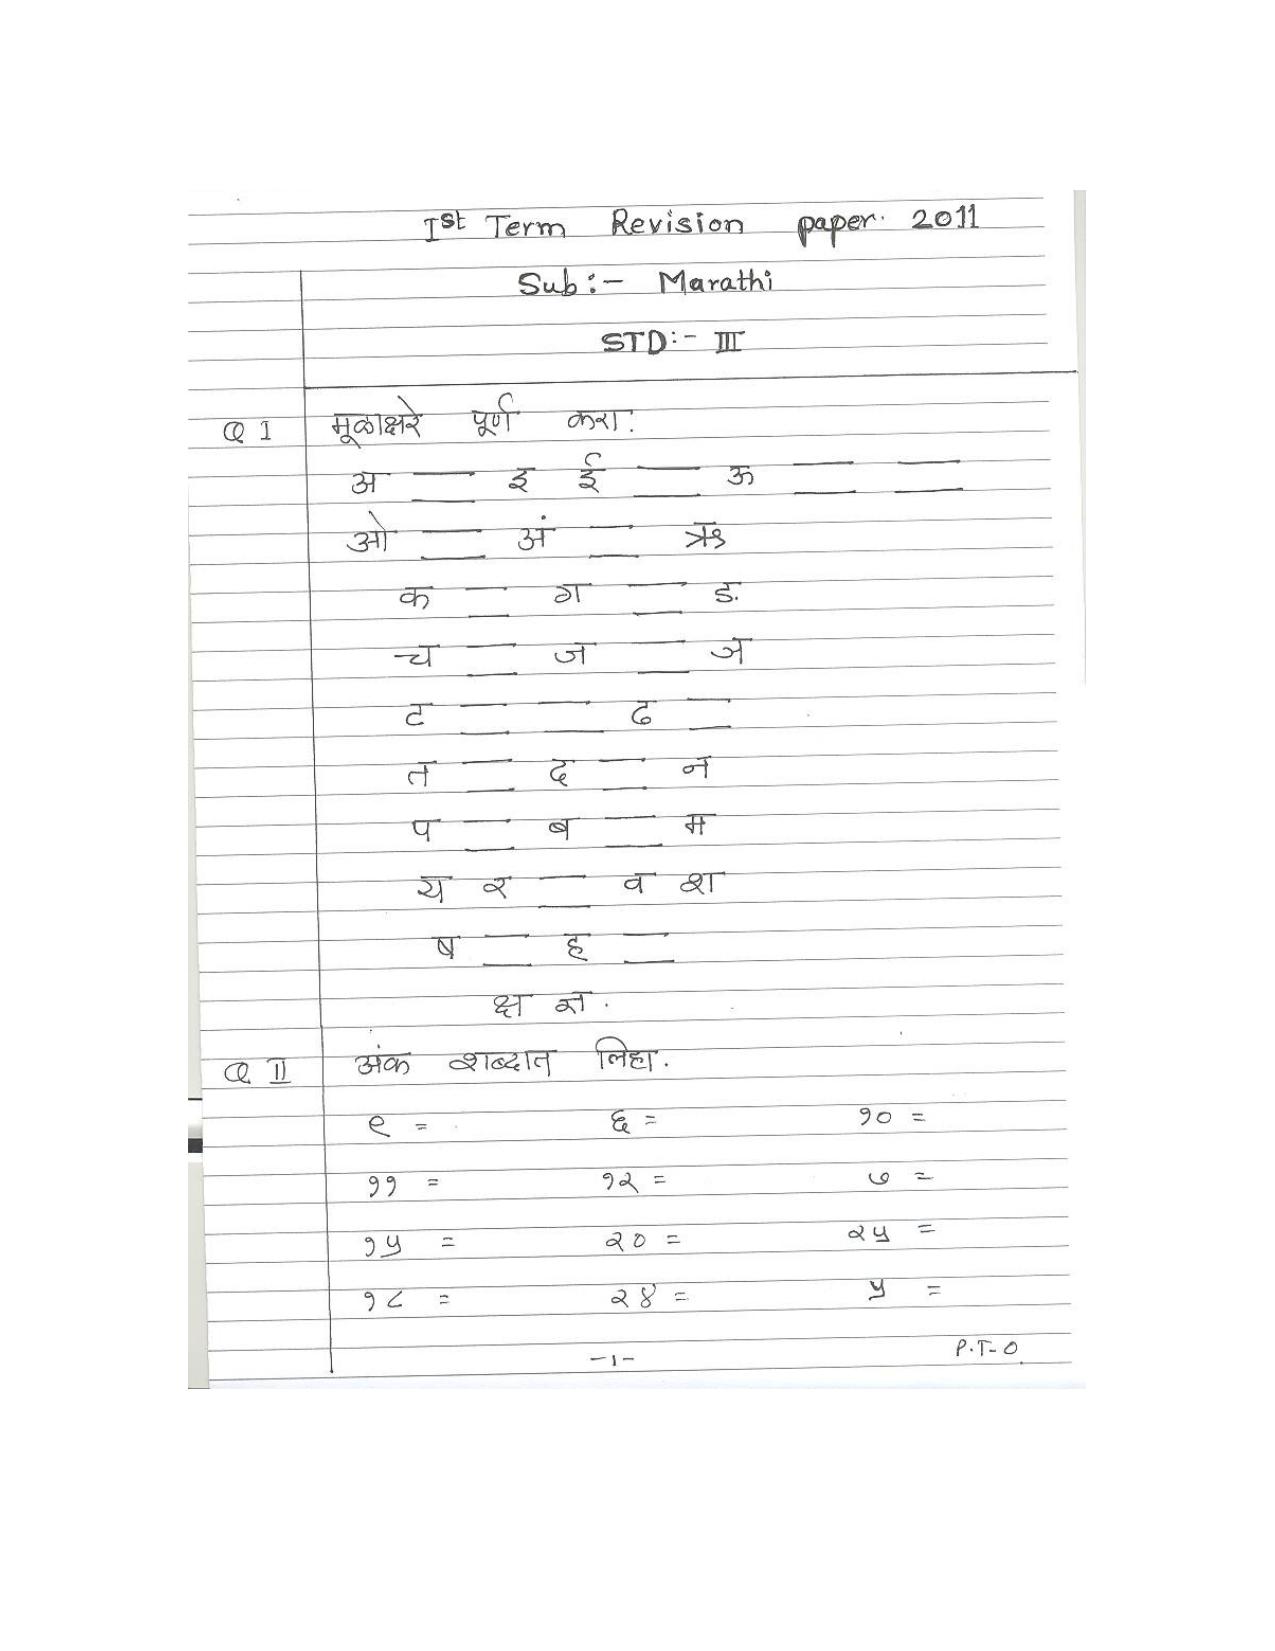 Ist Term Revision paper. 2011
Sub:- Marathi
STD:- III
Q I मूळाक्षरे पूर्ण करा.
अ __ इ ई __ ऊ __ __
ओ __ अं __ ऋ
क __ ग __ ङ
च __ ज __ ञ
ट __ __ ढ __
त __ द __ न
प __ ब __ म
य र __ व श
ष __ ह __
क्ष ज्ञ.
Q II अंक शब्दात लिहा.
९ = ६ = १० =
११ = १२ = ७ =
१५ = २० = २५ =
१८ = २४ = ५ =
-1- P.T-O.